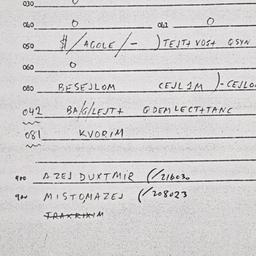 030
040 O 041 O
050 $/AGOLE/- ) TEJT+ VOS+ QSYN
060 O
080 BESEJLOM CEJL1M )-CEJLO
042 BA/G/LEJT+ QDEMLECT+TANC
081 KVORIM
900 AZEJ DUXTMIR (/216030
900 MISTOMAZEJ (/208023
TRAKRIXIM